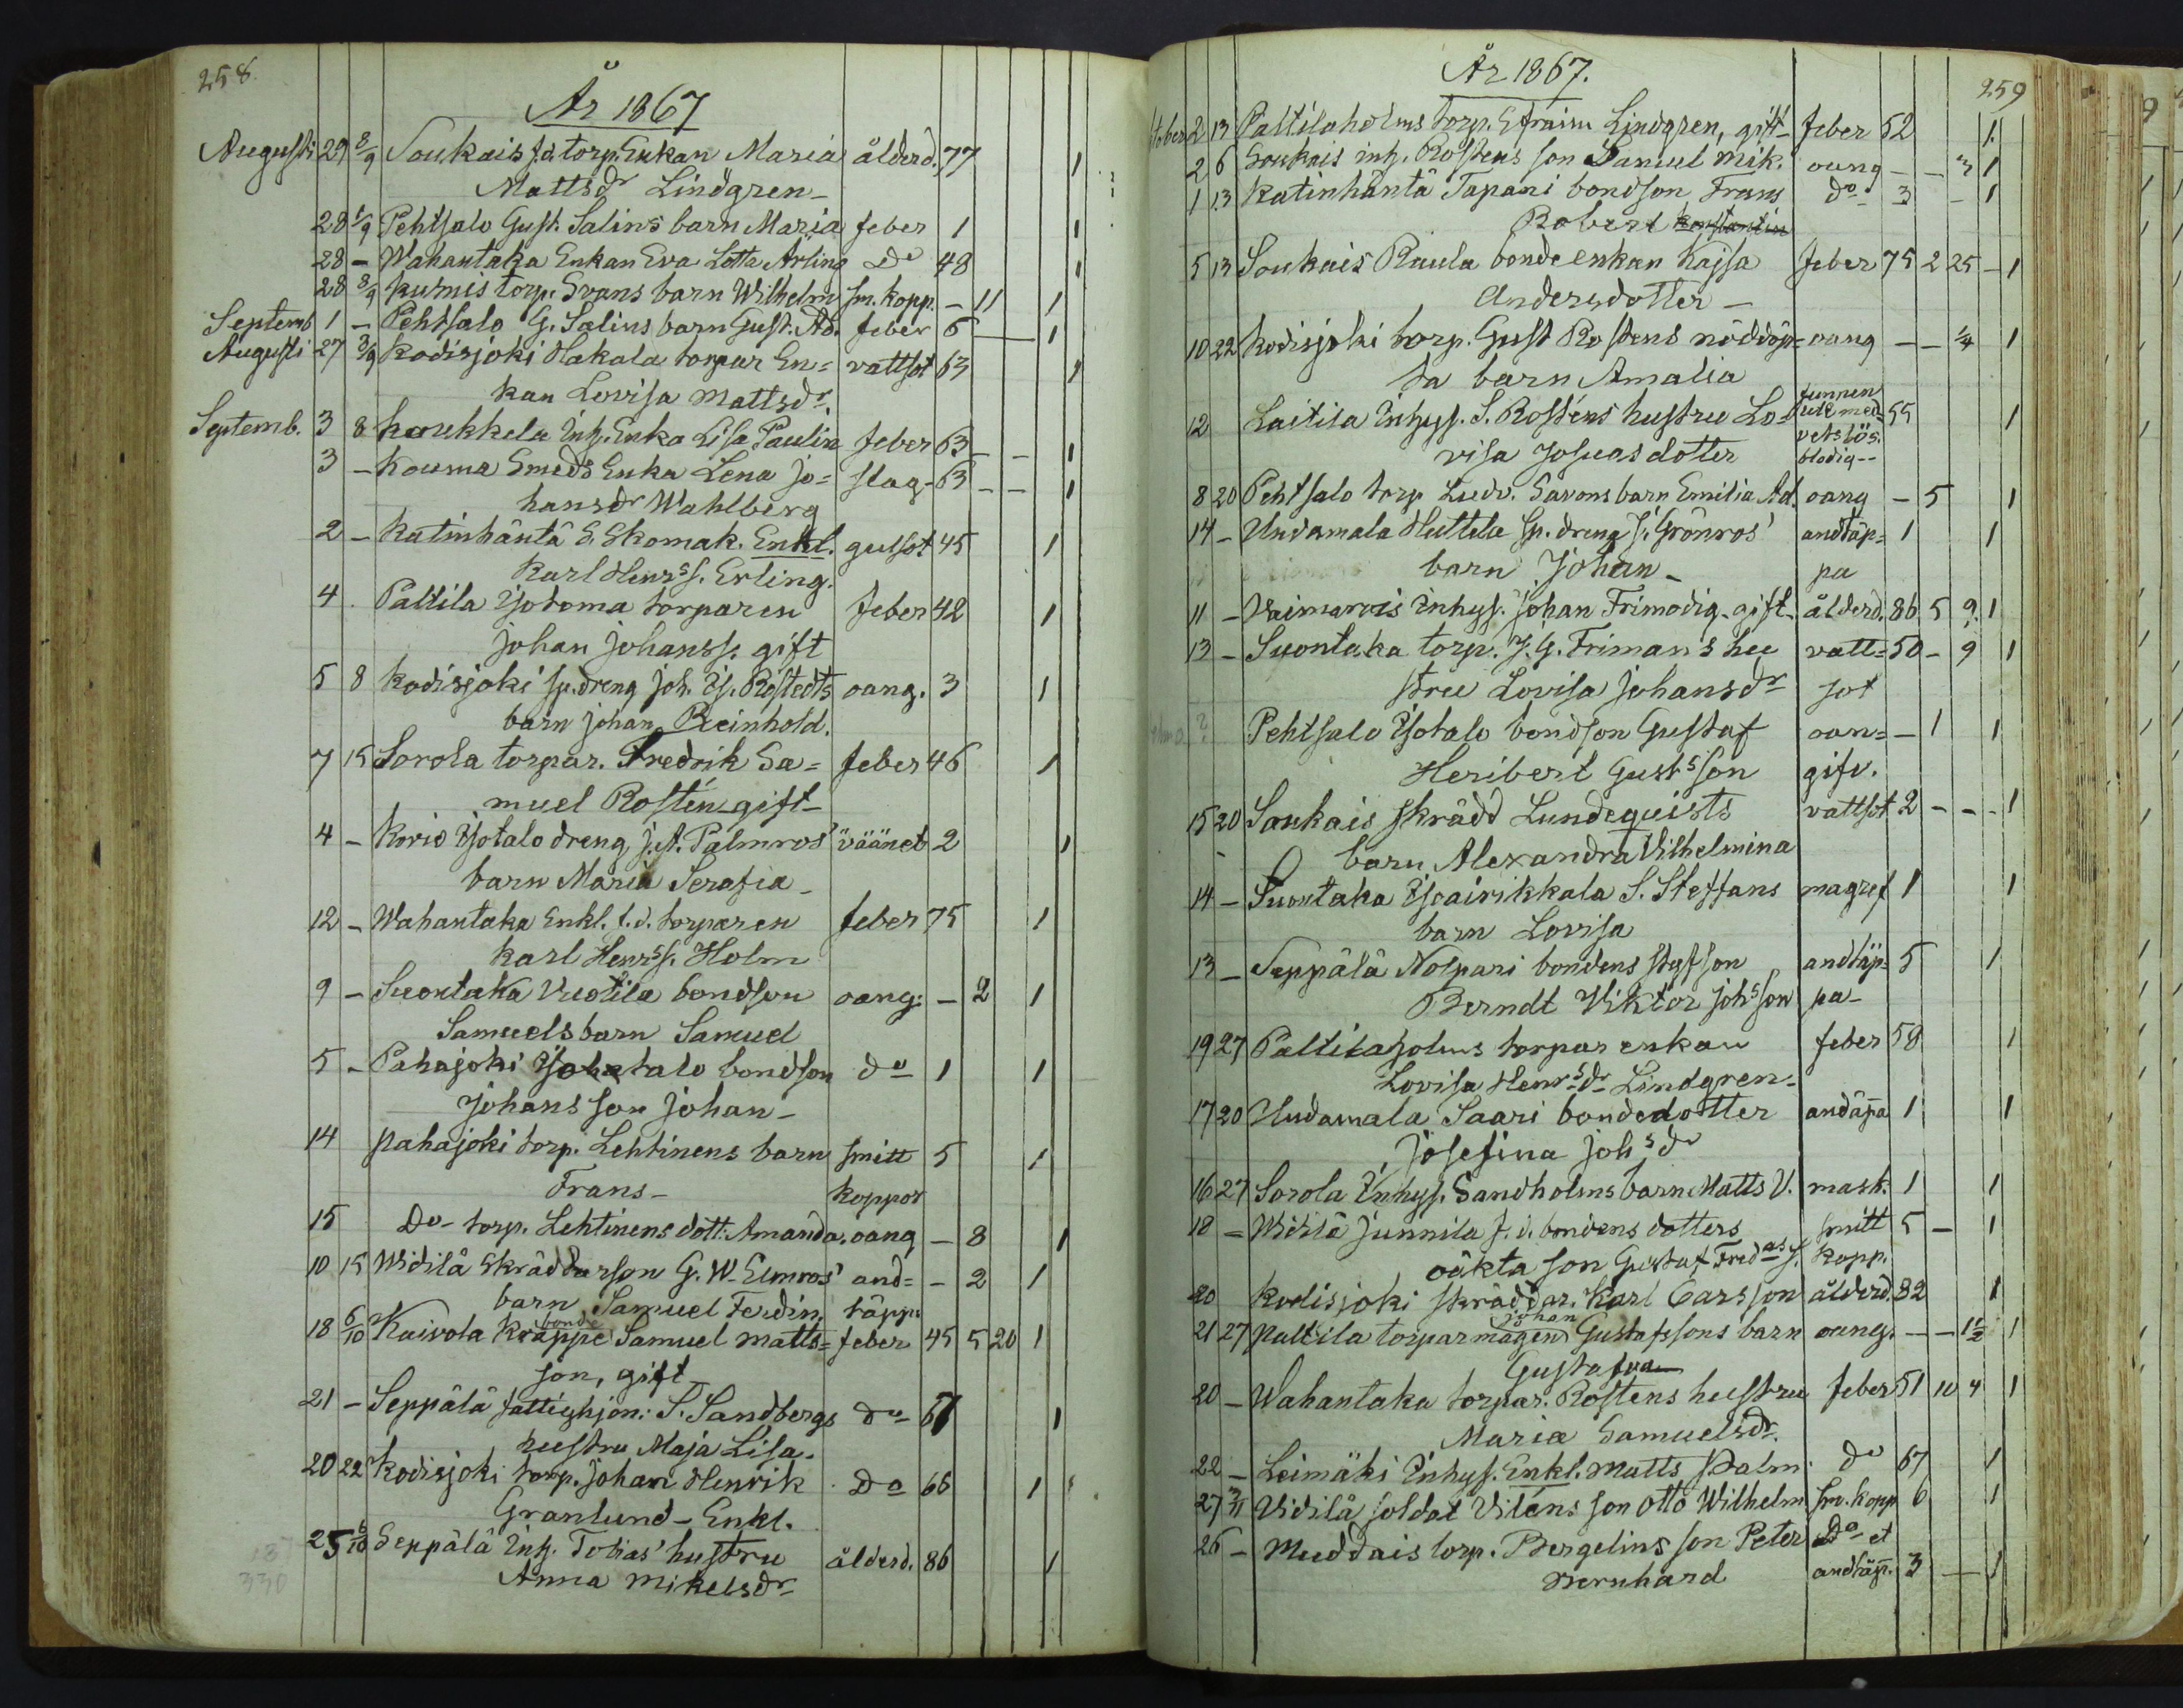 258.
År 1867
Augusti 29 8/9 Soukais f.d. torp. Enkan Maria ålderd. 77 1
Mattsdr Lindgren
28 1/9 Pehtsalo Gust. Salins barn Maria feber 1 1
28 - Wahantaka Enkan Eva Lotta Ärling Do 48 1
28 8/9 Kurnis torp. Svans barn Wilhelm sm. kopp. - 11 1
Septemb 1 - Pehtsalo G. Salins barn Gust. Ad. feber 6 1
Augusti 27 3/9 Kodisjoki Hakala torpar En= vattsot 63 1
kan Lovisa Mattsdr.
Septemb. 3 8 Koukkela Inh. Enka Lisa Paulin feber 63 - - 1
3 - Kouma Smeds Enka Lena Jo= slag- 63 - - 1
hansdr Wahlberg
2 - Katinhäntä S. Skomak. Enkl. gulsot 45 1
Karl Henrss. Erling.
4 Paltila Isotoma torparen feber 42 1
Johan Johanss. gift
5 8 Kodisjoki sp.dreng Joh. Is. Rostedts oang. 3 1
barn Johan Reinhold.
7 15 Sorola torpar. Fredrik Sa= feber 46 1
muel Rostén gift-
4 - Kovio Isotalo dreng J. A. Palmros' väänet 2 1
barn Maria Serafia-
12 - Wahantaka Enkl. f.d. torparen feber 75 1
Karl Henrss. Holm
9 - Suontaka Vuotila bondson oang: - 2 1
Samuels barn Samuel
5 - Pahajoki Isotalo bondson do 1 1
Johans son Johan-
14 Pahajoki torp. Lehtinens barn smitt 5 1
Frans- koppor
15 Do- torp. Lehtinens dott. Amanda. oang - 8 1
10 15 Widilä Skräddarson G. W. Elmros' and= - 2 1
barn Samuel Ferdin. täppa
bonde
18 6/10 Kaivola Kräppe Samuel Matts= feber 45 5 20 1
son, gift
21 - Seppälä fattighjon: S. Sandbergs do 67 1
hustru Maja Lisa.
20 22 Kodisjoki torp. Johan Henrik Do 66 1
Granlund - Enkl.
25 6/10 Seppälä Inh. Tobias' hustru ålderd. 86 1
Anna Mikelsdr
330
År 1867.
259
tober 2 13 Paltilaholms torp. Efraim Lindgren, gift- feber 52 1
2 6 Soukais inh. Rostens son Samuel Mik. oang - - 3 1
1 13 Katinhäntä Tapani bondson Frans do 3 - 1
Robert Konstantin
5 13 Soukais Raula bonde enkan Kajsa feber 75 2 25 - 1
Andersdotter -
10 22 Kodisjoki torp. Gust Rostens nöddöp= oang - - 1/4 1
ta barn Amalia
funnen
12 Laitila Inhys. S. Rosténs hustru Lo= ute med= 55 1
vetslös.
visa Josuas dotter blodig--
8 20 Pehtsalo torp Ludv. Savons barn Emilia Ad. oang - 5 1
14 - Undamala Huttila sp. dreng J. Grönros' andtäp= 1 1
barn Johan - pa
11 - Vaimarois Inhys. Johan Frimodig - gift- ålderd. 86 5 9. 1
13 - Suontaka torp. J. G. Frimans hu vatt= 50 - 9 1
stru Lovisa Johansdr sot
Pehtsalo Isotalo bondson Gustaf oan= - 1 1
Heribert Gustsson gifv.
15 20 Soukais skrädd Lundequists vattsot 2 - - - 1
barn Alexandra Vilhelmina
14 - Suontaka Isoairikkala S. Steffans magref 1 1
barn Lovisa
13 - Seppälä Nolpari bondens styfson andtäp= 5 1
Berndt Viktor Johsson pa-
19 27 Paltilaholms torpar enkan feber 58 1
Lovisa Henrsdr Lindgren-
17 20 Undamala Saari bondedotter andäpa 1 1
Josefina Johsdr
16 27 Sorola Inhys. Sandholms barn Matts V. mask. 1 1
18 - Widilä Junnila f.d. bondens dotters smitt 5 - 1
oäkta son Gustaf Fredass. kopp.
20 Kodisjoki skräddar. Karl Carsson ålderd. 82 1
Johan
21 27 Paltila torparmågen Gustafssons barn oang. - - 1 1/2 1
Gustafva
20 - Wahantaka torpar. Rostens hustru feber 51 10 4 1
Maria Samuelsdr.
22 - Leimäki Inhys. Enkl. Matts Palm do 67 1
27 3/11 Vidilä soldat Viténs son Otto Wilhelm sm. kopp 6 1
26 - Muddais torp. Bergelins son Peter Do- et
Bernhard andtäp. 3 - 1